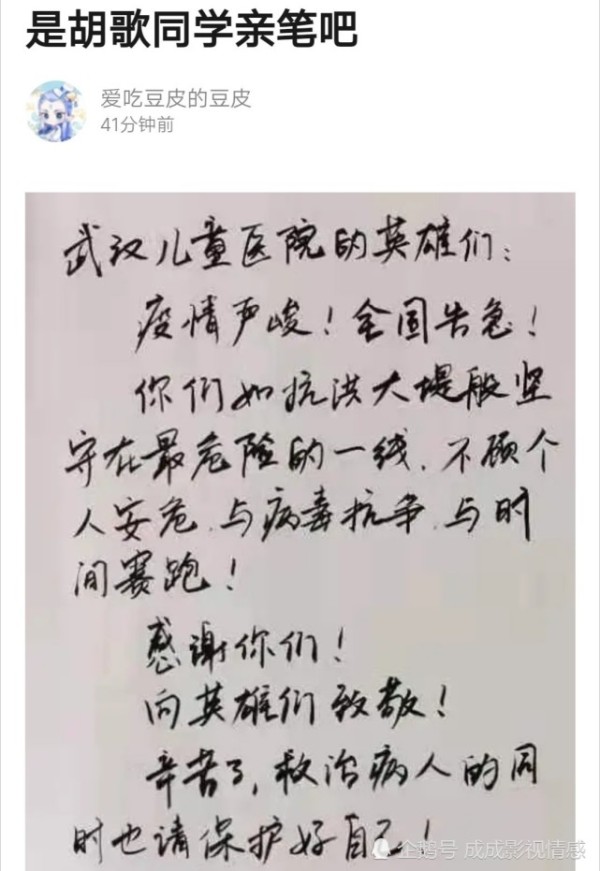 是胡歌同学亲笔吧
爱吃豆皮的豆皮
41分钟前
武汉儿童医院的英雄们：
疫情严峻！全国告急！
你们如抗洪大堤般坚
守在最危险的一线，不顾个
人安危，与病毒抗争，与时
间赛跑！
感谢你们！
向英雄们致敬！
辛苦了，救治病人的同
时也请保护好自己！
企鹅号 成成影视情感